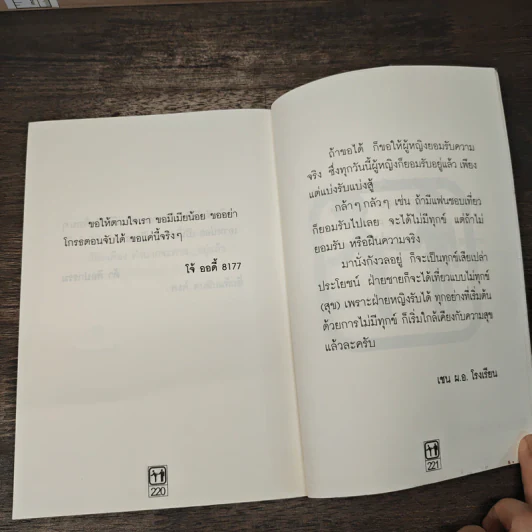 ขอให้ตามใจเรา ขอมีเมียน้อย ขออย่า
โกรธตอนจับได้ ขอแค่นี้จริงๆ
โจ้ ออดี้ 8177
220
ถ้าขอได้ ก็ขอให้ผู้หญิงยอมรับความ
จริง ซึ่งทุกวันนี้ผู้หญิงก็ยอมรับอยู่แล้ว เพียง
แต่แบ่งรับแบ่งสู้
กล้าๆ กลัวๆ เช่น ถ้ามีแฟนชอบเที่ยว
ก็ยอมรับไปเลย จะได้ไม่มีทุกข์ แต่ถ้าไม่
ยอมรับ หรือฝืนความจริง
มานั่งกังวลอยู่ ก็จะเป็นทุกข์เสียเปล่า
ประโยชน์ ฝ่ายชายก็จะได้เที่ยวแบบไม่ทุกข์
(สุข) เพราะฝ่ายหญิงรับได้ ทุกอย่างที่เริ่มต้น
ด้วยการไม่มีทุกข์ ก็เริ่มใกล้เคียงกับความสุข
แล้วละครับ
เชน ผ.อ. โรงเรียน
221